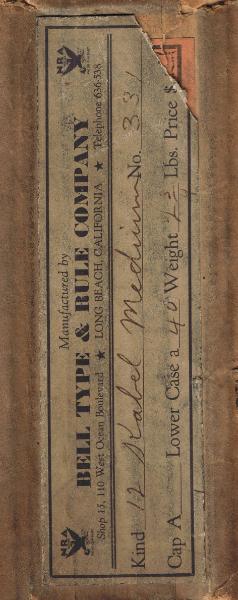 Manufactured by
NRA BELL TYPE & RULE COMPANY NRA
Shop 15, 110 West Ocean Boulevard ★ LONG BEACH, CALIFORNIA ★ Telephone 636-538
Kind 12 Kabel Medium No. 331
Cap A Lower Case a 40 Weight 2½ Lbs. Price $